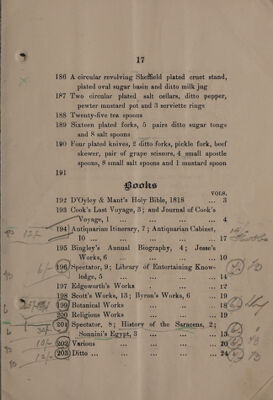 17
186 A circular revolving Sheffield plated cruet stand,
plated oval sugar basin and ditto milk jug
187 Two circular plated salt cellars, ditto pepper,
pewter mustard pot and 3 serviette rings
188 Twenty-five tea spoons
189 Sixteen plated forks, 5 pairs ditto sugar tongs
and 8 salt spoons
190 Four plated knives, 2 ditto forks, pickle fork, beef
skewer, pair of grape scissors, 4 small apostle
spoons, 8 small salt spoons and 1 mustard spoon
191
Books
VOLS.
192 D'Oyley & Mant's Holy Bible, 1818 ... 3
193 Cook's Last Voyage, 3; and Journal of Cook's
Voyage, 1 ... ... ... ... 4
194 Antiquarian Itinerary, 7; Antiquarian Cabinet,
10 ... ... ... ... ... 17
195 Bingley's Annual Biography, 4; Jesse's
Works, 6 ... ... ... ... 10
196 Spectator, 9; Library of Entertaining Know-
ledge, 5 ... ... ... ... 14
197 Edgeworth's Works ... ... 12
198 Scott's Works, 13; Byron's Works, 6 ... 19
199 Botanical Works ... ... ... 18
200 Religious Works ... ... ... 19
201 Spectator, 8; History of the Saracens, 2;
Sonnini's Egypt, 3 ... ... ... 13
202 Various ... ... ... ... 20
203 Ditto ... ... ... ... ... 24